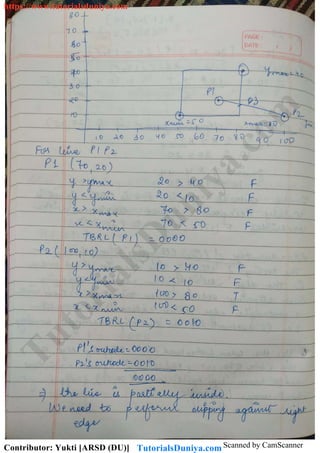 https://www.tutorialsduniya.com
PAGE:
DATE:
80
70
60
50
40
30
20
10
ymax=40
P1
P3
P2
xmin=50
xmax=80
10 20 30 40 50 60 70 80 90 100
For line P1P2
P1 (70,20)
y>ymax 20 > 40 F
y<ymin 20 < 10 F
x>xmax 70 > 80 F
x<xmin 70 < 50 F
TBRL (P1) = 0000
P2 (100,10)
y>ymax 10 > 40 F
y<ymin 10 < 10 F
x>xmax 100 > 80 T
x<xmin 100 < 50 F
TBRL (P2) = 0010
P1's outcode = 0000
P2's outcode = 0010
0000
⇒ the line is partially inside.
We need to perform clipping against right
edge
TutorialsDuniya.com
Contributor: Yukti [ARSD (DU)] TutorialsDuniya.com Scanned by CamScanner